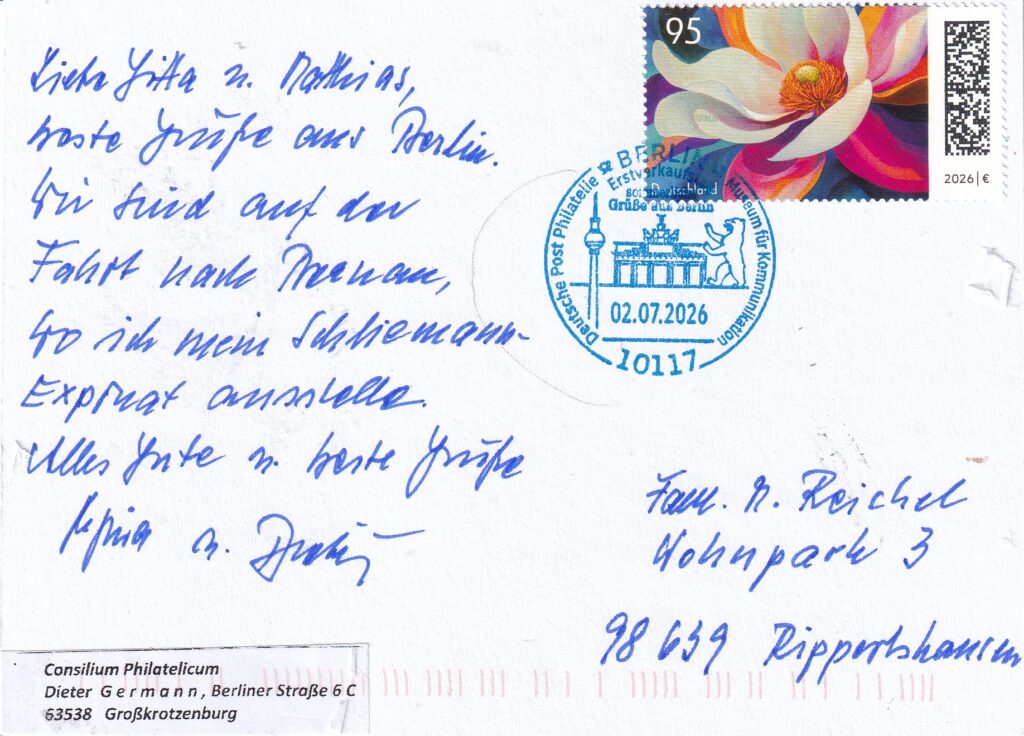 Liebe Gitta u. Matthias,
beste Grüße aus Berlin.
Wir sind auf der
Fahrt nach
wo ich mein Schliemann-
Exponat ausstelle.
Alles Gute u. beste Grüße
u.
95
Deutschland
2026|€
BERLIN
Deutsche Post Philatelie
Museum für Kommunikation
Erstverkauf
Grüße aus Berlin
02.07.2026
10117
Fam. M. Reichel
Wohnpark 3
98 639 Rippershausen
Consilium Philatelicum
Dieter G e r m a n n , Berliner Straße 6 C
63538 Großkrotzenburg